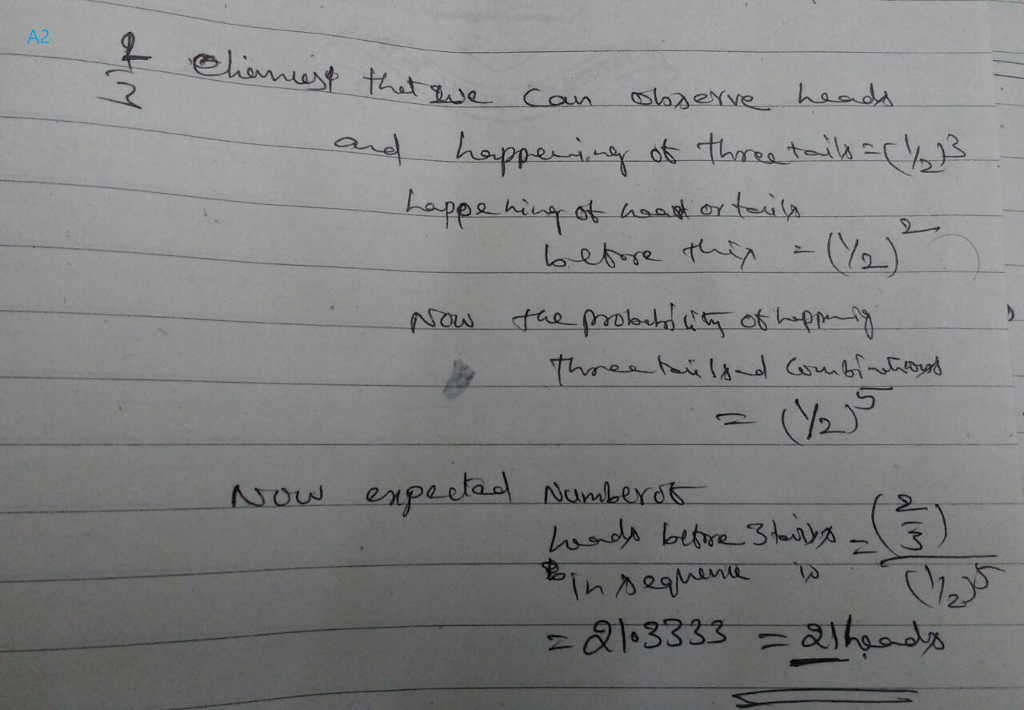 A2
2/3 Chances that we can observe heads
and happening of three tails = (1/2)3
happening of head or tails
before this = (1/2)2
Now the probability of happening
three tails and combinations
= (1/2)5
Now expected Number of
heads before 3 tails = (2/3)/(1/2)5
in sequence is
= 21.3333 = 21 heads